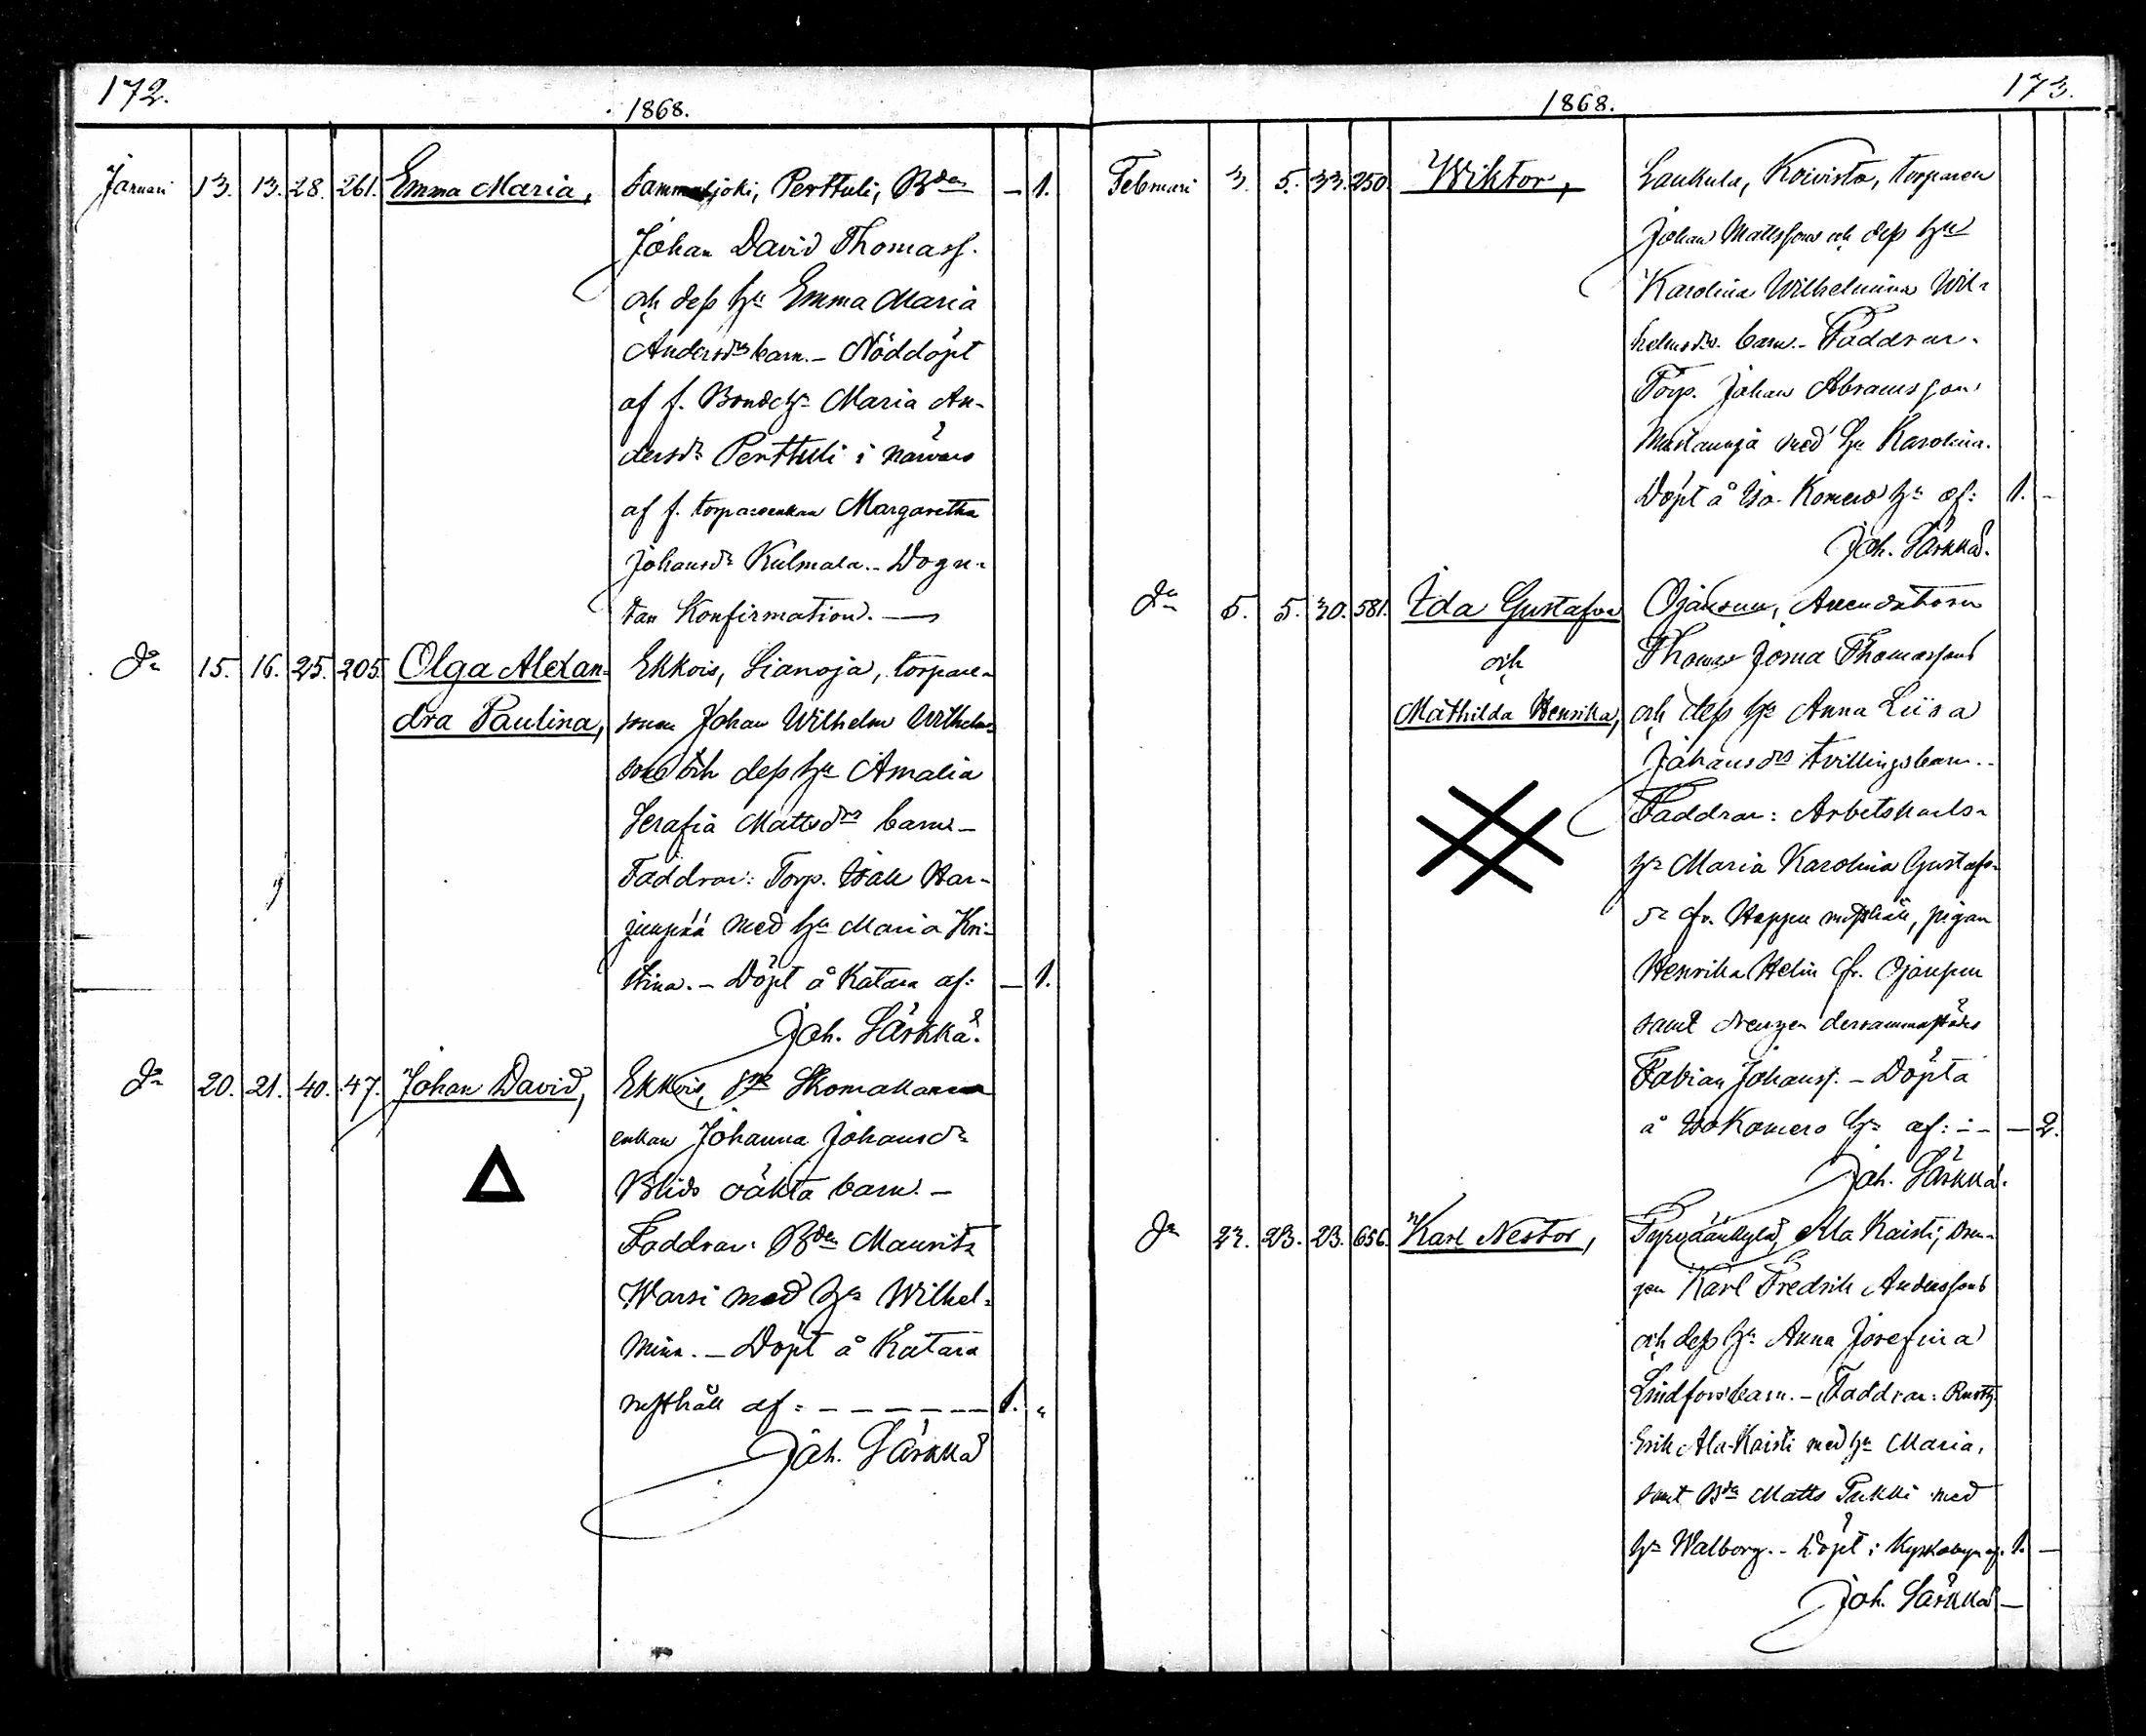 172.
1868.
Januari 13. 13. 28. 261. Emma Maria, Sammaljoki, Perttuli, Bden — 1.
Johan David Thomass.
och dess hu Emma Maria
Andersdrs barn. – Nöddöpt
af f. Bondehu Maria An-
dersdr Perttuli i närvaro
af f. torpareenkan Margaretha
Johansdr Kulmala. – Dog u-
tan Konfirmation. —
Do 15. 16. 25. 205. Olga Alexan- Ekkois, Lianoja, torpare-
dra Paulina, sonen Johan Wilhelm Wilhelms-
sons och dess hu Amalia
Serafia Mattsdrs barn –
Faddrar: Torp. Isak Har-
junpää med hu Maria Kri-
stina. – Döpt å Katara af: — 1.
Joh. Särkkä.
Do 20. 21. 40. 47. Johan David, Ekkois, Skomakare
enkan Johanna Johansdr
Blids oäkta barn. –
Faddrar: Bden Mauritz
Warsi med hu Wilhel-
mina. – Döpt å Katara
rusthåll af: – – – – – – 1. "
Joh. Särkkä
173.
1868.
Februari 3. 5. 33. 250. Wiktor, Laukula, Koivisto, torparen
Johan Mattssons och dess hu
Karolina Wilhelmina Wil-
helmsdrs barn. – Faddrar.
Torp. Johan Abramsson
med hu Karolina.
Döpt å Iso-Komero hn af: 1. –
Joh. Särkkä.
Do 5. 5. 30. 581. Ida Gustafva Ojansuu, Arendatorn
och Thomas Josua Thomassons
Mathilda Henrika, och dess hu Anna Liisa
Johansdrs tvillingsbarn. –
Faddrar: Arbetskarls-
hu Maria Karolina Gustafs-
dr fr. rusthåll, pigan
Henrika Helin fr. Ojansuu
samt drengen dersammastädes
Fabian Johanss. – Döpta
å IsoKomero hn af: – – — 2.
Joh. Särkkä.
Do 22. 23. 23. 656. Karl Nestor, Ala Kaisti, Dren-
gen Karl Fredrik Anderssons
och dess hu Anna Josefina
Lindfors barn. – Faddrar: Rusth.
Erik Ala-Kaisti med hu Maria,
samt Bden Matts Pukki med
hu Walborg. – Döpt i Kyrkobyn af 1. —
Joh. Särkkä. —